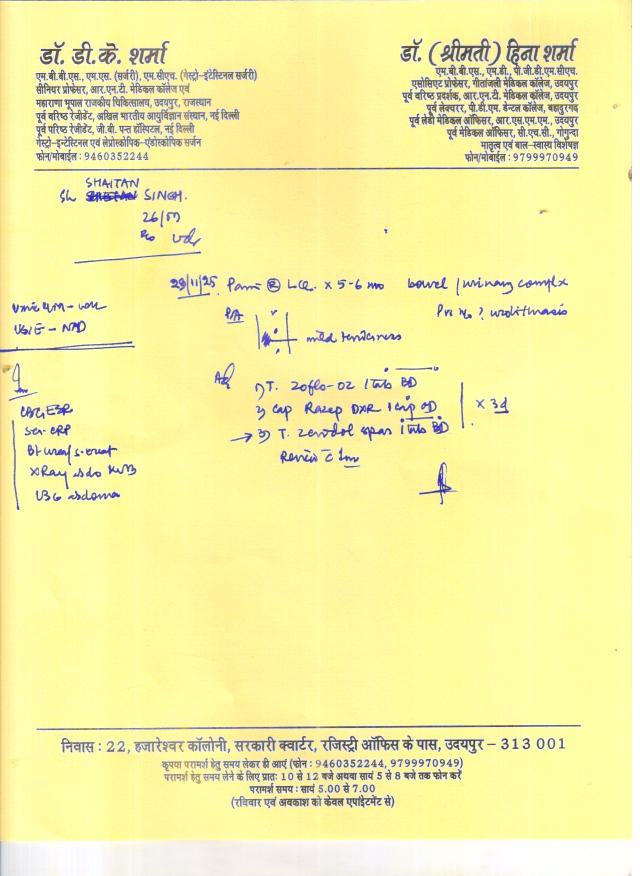 डॉ. डी.के. शर्मा
एम.बी.बी.एस., एम.एस. (सर्जरी), एम.सीएच. (गेस्ट्रो-इंटेस्टिनल सर्जरी)
सीनियर प्रोफेसर, आर.एन.टी. मेडिकल कॉलेज एवं
महाराणा भूपाल राजकीय चिकित्सालय, उदयपुर, राजस्थान
पूर्व वरिष्ठ रेजीडेंट, अखिल भारतीय आयुर्विज्ञान संस्थान, नई दिल्ली
पूर्व वरिष्ठ रेजीडेंट, जी.बी. पन्त हॉस्पिटल, नई दिल्ली
गेस्ट्रो-इन्टेस्टिनल एवं लेप्रोस्कोपिक-एंडोस्कोपिक सर्जन
फोन/मोबाईल : 9460352244
डॉ. (श्रीमती) हिना शर्मा
एम.बी.बी.एस., एम.डी., पी.जी.डी.एम.सीएच.
एसोसिएट प्रोफेसर, गीतांजली मेडिकल कॉलेज, उदयपुर
पूर्व वरिष्ठ प्रदर्शक, आर.एन.टी. मेडिकल कॉलेज, उदयपुर
पूर्व लेक्चरर, पी.डी.एम. डेन्टल कॉलेज, बहादुरगढ़
पूर्व लेडी मेडिकल ऑफिसर, आर.एस.एम.एम., उदयपुर
पूर्व मेडिकल ऑफिसर, सी.एच.सी., गोगुन्दा
मातृत्व एवं बाल-स्वास्थ्य विशेषज्ञ
फोन/मोबाईल : 9799970949
SHAITAN
Sh SINGH.
26/M
R/o Udr
29/11/25 Pain R × 5-6 mo bowel / urinary
P/A
mild tenderness
USG - NAD
Adv
1) T. Zoflo-OZ 1 tab BD
2) Cap Razep DXR 1 cap OD × 3d
→ 3) T. Zerodol spas 1 tab BD
Review c Inv
Inv
CBC/ESR
Ser. CRP
Bl. urea/s. creat
XRay abdo KUB
USG abdomen
निवास : 22, हजारेश्वर कॉलोनी, सरकारी क्वार्टर, रजिस्ट्री ऑफिस के पास, उदयपुर – 313 001
कृपया परामर्श हेतु समय लेकर ही आएं (फोन : 9460352244, 9799970949)
परामर्श हेतु समय लेने के लिए प्रातः 10 से 12 बजे अथवा सायं 5 से 8 बजे तक फोन करें
परामर्श समय : सायं 5.00 से 7.00
(रविवार एवं अवकाश को केवल एपाईंटमेंट से)